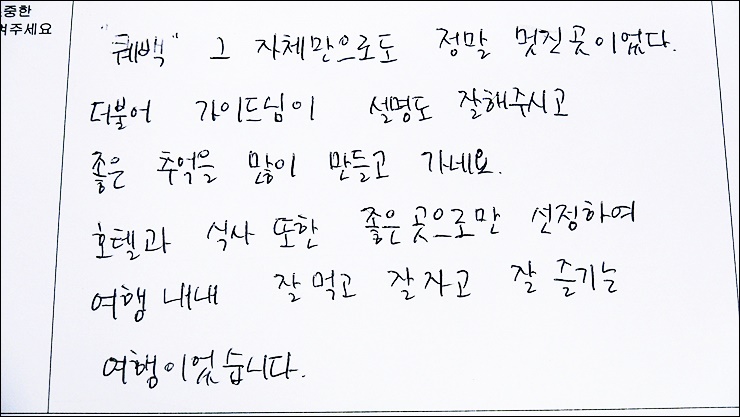 중한
여주세요
"퀘백" 그 자체만으로도 정말 멋진곳이었다.
더불어 가이드님이 설명도 잘해주시고
좋은 추억을 많이 만들고 가네요.
호텔과 식사 또한 좋은곳으로만 선정하여
여행 내내 잘먹고 잘자고 잘 즐기는
여행이었습니다.